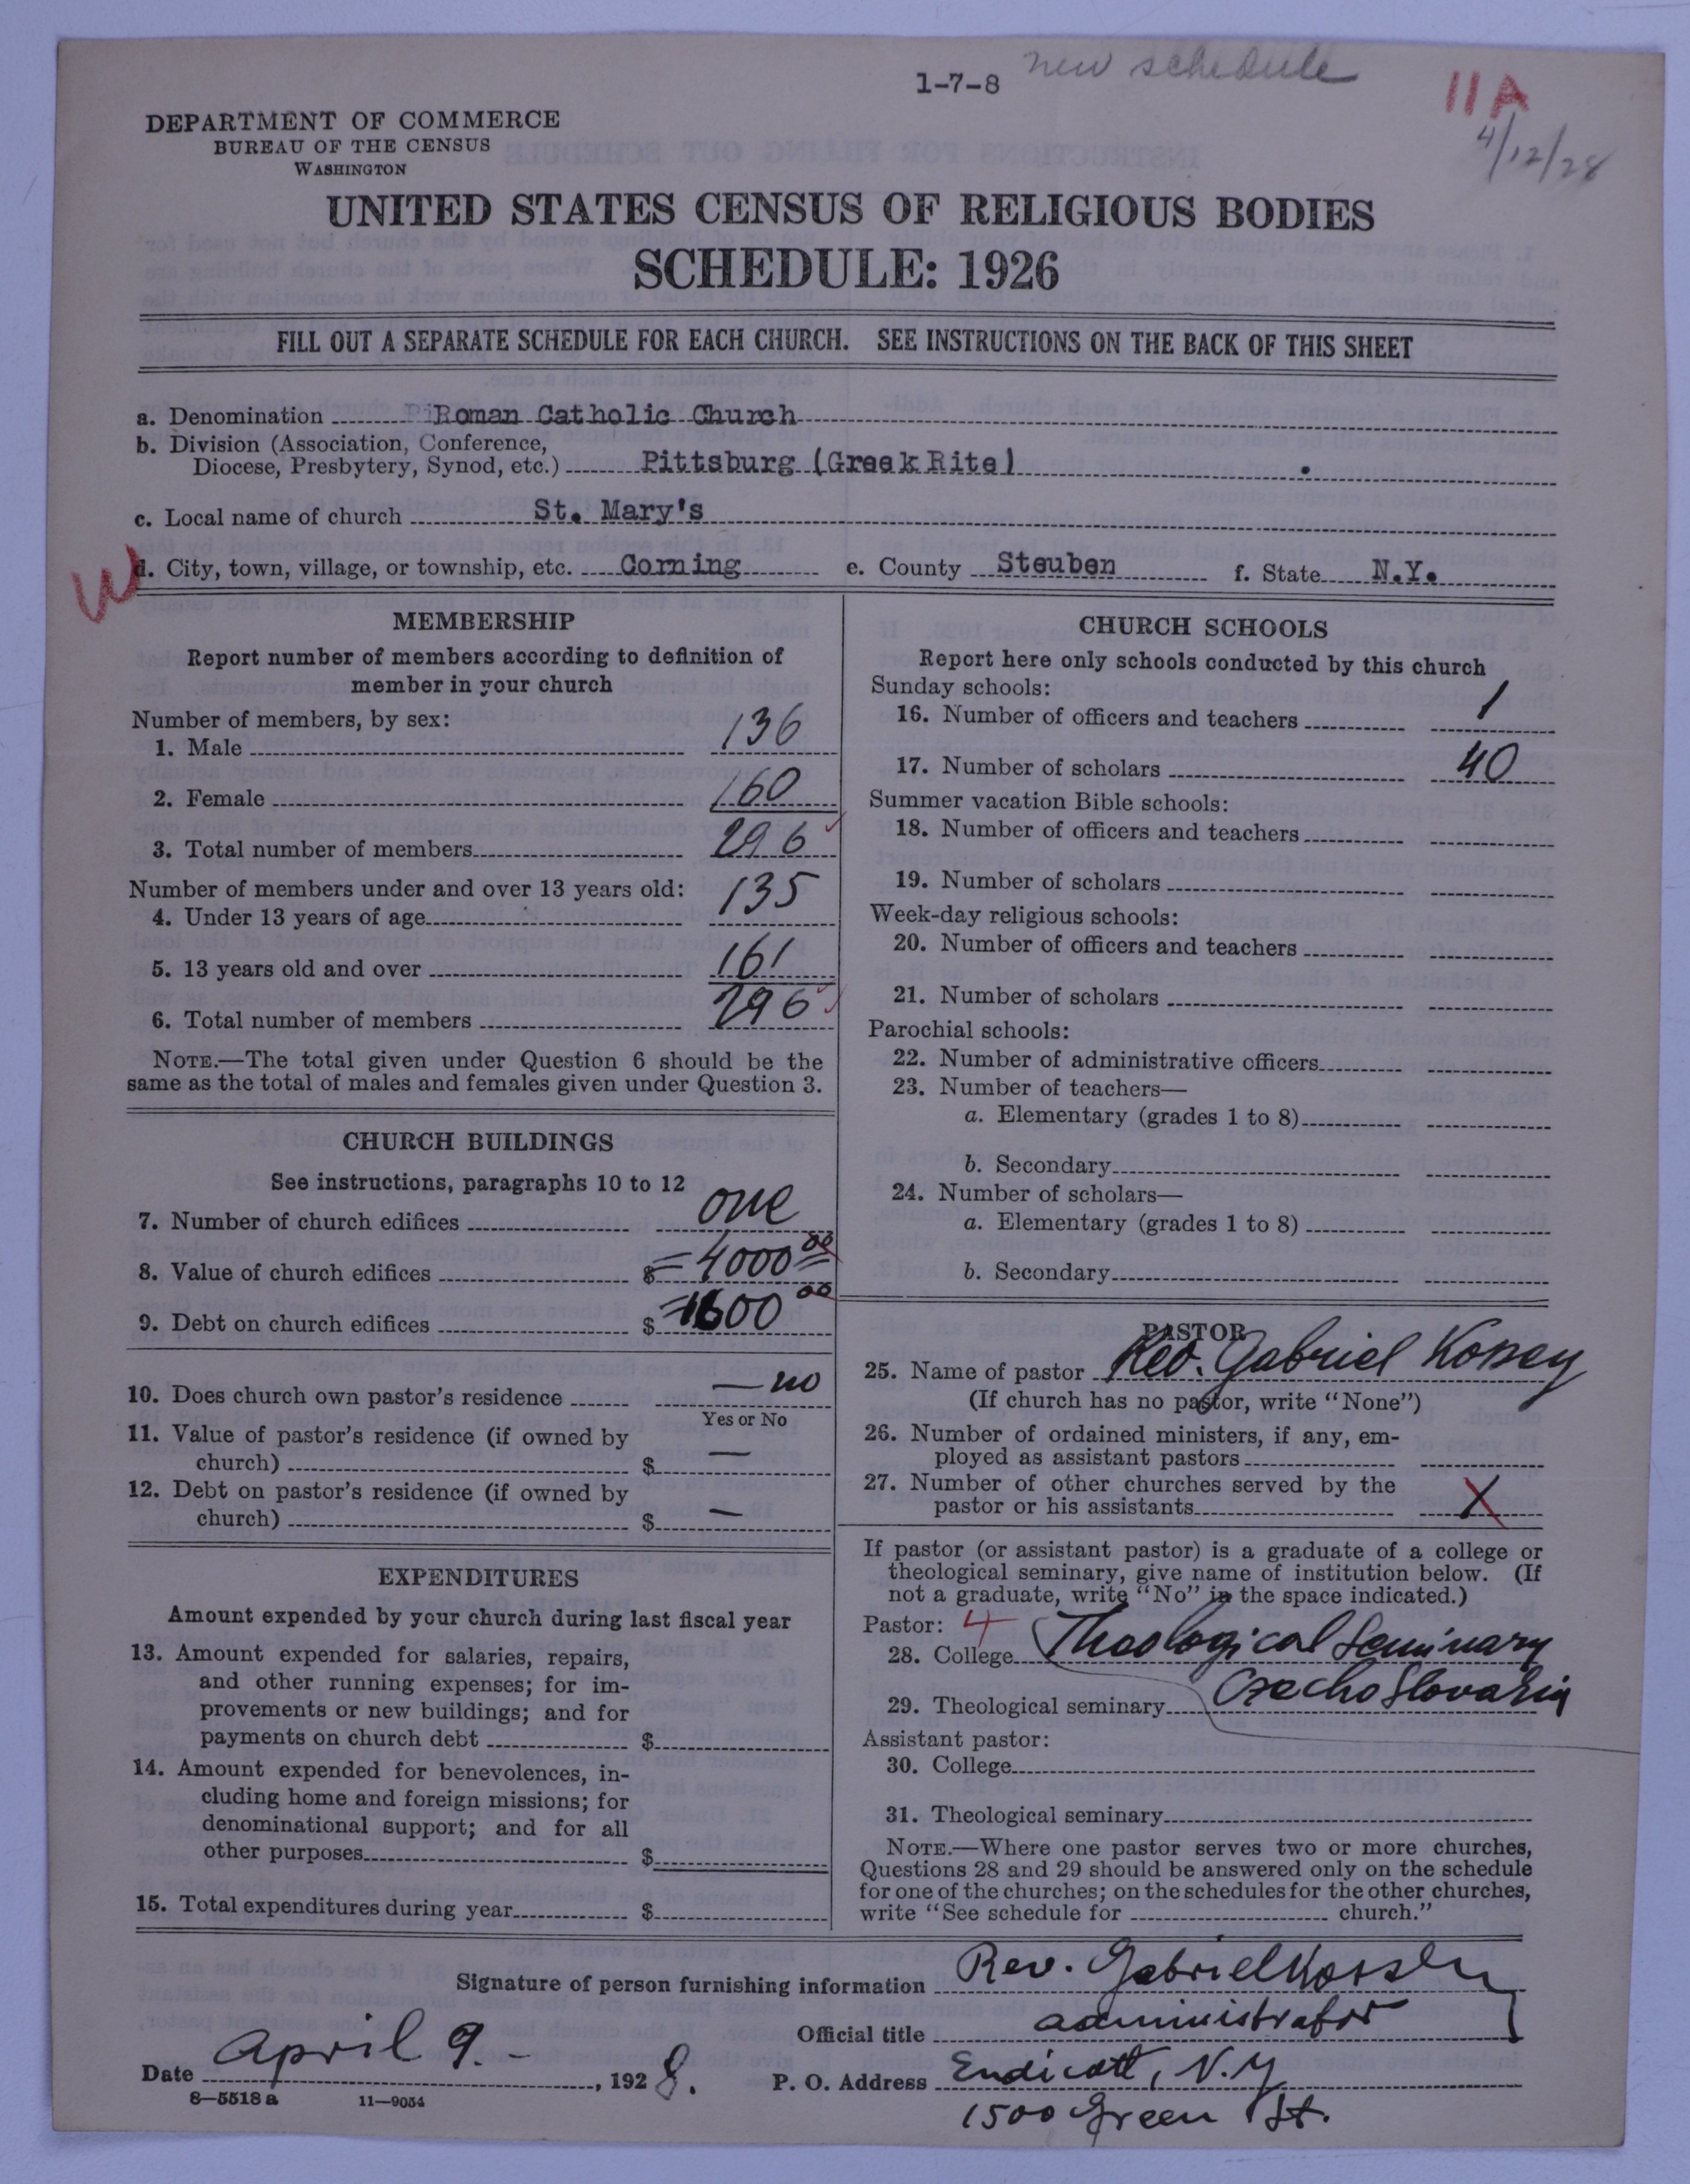 new schedule
1-7-8
11A
4/12/28
DEPARTMENT OF COMMERCE
BUREAU OF THE CENSUS
WASHINGTON
UNITED STATES CENSUS OF RELIGIOUS BODIES
SCHEDULE: 1926
FILL OUT A SEPARATE SCHEDULE FOR EACH CHURCH. SEE INSTRUCTIONS ON THE BACK OF THIS SHEET
a. Denomination Roman Catholic Church
b. Division (Association, Conference,
Diocese, Presbytery, Synod, etc.) Pittsburg (Greek Rite)
c. Local name of church St. Mary's
W
d. City, town, village, or township, etc. Corning e. County Steuben f. State N.Y.
MEMBERSHIP
Report number of members according to definition of
member in your church
Number of members, by sex:
1. Male 136
2. Female 160
3. Total number of members 296
Number of members under and over 13 years old:
4. Under 13 years of age 135
5. 13 years old and over 161
6. Total number of members 296
NOTE.—The total given under Question 6 should be the
same as the total of males and females given under Question 3.
CHURCH BUILDINGS
See instructions, paragraphs 10 to 12
7. Number of church edifices one
8. Value of church edifices $ 4000 00
9. Debt on church edifices $ 1600 00
10. Does church own pastor's residence — no
Yes or No
11. Value of pastor's residence (if owned by
church) $ —
12. Debt on pastor's residence (if owned by
church) $ —
EXPENDITURES
Amount expended by your church during last fiscal year
13. Amount expended for salaries, repairs,
and other running expenses; for im-
provements or new buildings; and for
payments on church debt $
14. Amount expended for benevolences, in-
cluding home and foreign missions; for
denominational support; and for all
other purposes $
15. Total expenditures during year $
CHURCH SCHOOLS
Report here only schools conducted by this church
Sunday schools:
16. Number of officers and teachers 1
17. Number of scholars 40
Summer vacation Bible schools:
18. Number of officers and teachers
19. Number of scholars
Week-day religious schools:
20. Number of officers and teachers
21. Number of scholars
Parochial schools:
22. Number of administrative officers
23. Number of teachers—
a. Elementary (grades 1 to 8)
b. Secondary
24. Number of scholars—
a. Elementary (grades 1 to 8)
b. Secondary
PASTOR
25. Name of pastor Rev. Gabriel Kossey
(If church has no pastor, write "None")
26. Number of ordained ministers, if any, em-
ployed as assistant pastors
27. Number of other churches served by the
pastor or his assistants
If pastor (or assistant pastor) is a graduate of a college or
theological seminary, give name of institution below. (If
not a graduate, write "No" in the space indicated.)
Pastor: 4
28. College Theological Seminary
29. Theological seminary Czecho Slovakia
Assistant pastor:
30. College
31. Theological seminary
NOTE.—Where one pastor serves two or more churches,
Questions 28 and 29 should be answered only on the schedule
for one of the churches; on the schedules for the other churches,
write "See schedule for church."
Signature of person furnishing information Rev. Gabriel Kossey
Official title administrator
Date April 9. - , 1928. P. O. Address Endicott, N.Y
1500 Green St.
8—5518 a 11—9054